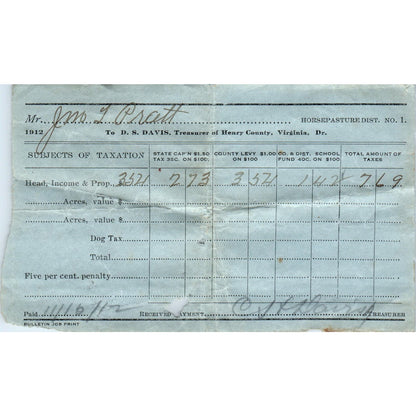 Mr. Jno L Pratt HORSEPASTURE DIST. NO. 1.
1912 To D. S. DAVIS, Treasurer of Henry County, Virginia, Dr.
SUBJECTS OF TAXATION STATE CAP'N $1.50 TAX 35C. ON $100. COUNTY LEVY $1.00 ON $100 CO. & DIST. SCHOOL FUND 40C. ON $100 TOTAL AMOUNT OF TAXES
Head, Income & Prop. 354 2 73 3 54 1 42 7 69
Acres, value $
Acres, value $
Dog Tax
Total
Five per cent. penalty
Paid 11/16/12 RECEIVED PAYMENT, TREASURER
BULLETIN JOB PRINT